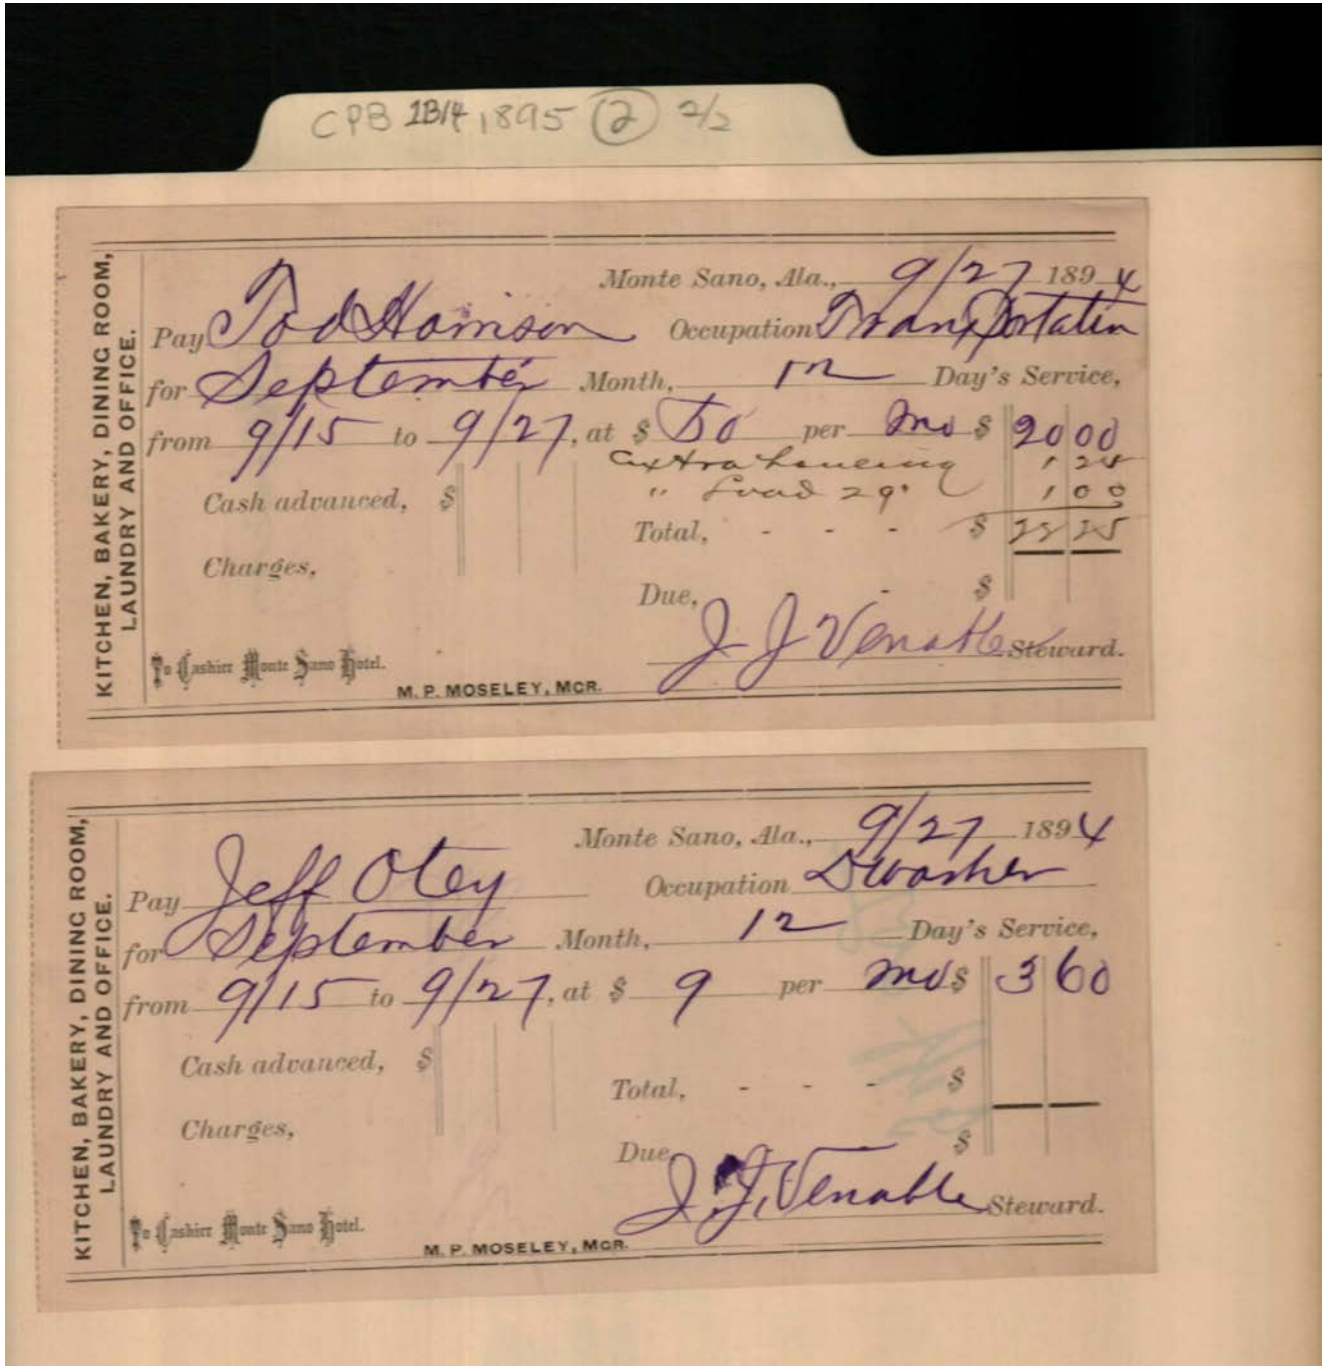 CPB 1B14 1895 (2) 2/2
KITCHEN, BAKERY, DINING ROOM,
LAUNDRY AND OFFICE.
Monte Sano, Ala., 9/27 1894
Pay Tod Harrison Occupation Transportatin
for September Month, 12 Day's Service,
from 9/15 to 9/27, at $ 50 per mo $ 20 00
extra 1 25
Cash advanced, $ " 29 1 00
Total, - - - $ 22 25
Charges,
Due, - $
J J Venable Steward.
To Cashier Monte Sano Hotel.
M. P. MOSELEY, MGR.
KITCHEN, BAKERY, DINING ROOM,
LAUNDRY AND OFFICE.
Monte Sano, Ala., 9/27 1894
Pay Jeff Otey Occupation Dwasher
for September Month, 12 Day's Service,
from 9/15 to 9/27, at $ 9 per mo $ 3 60
Cash advanced, $
Total, - - - $
Charges,
Due $
J. J. Venable Steward.
To Cashier Monte Sano Hotel.
M. P. MOSELEY, MGR.